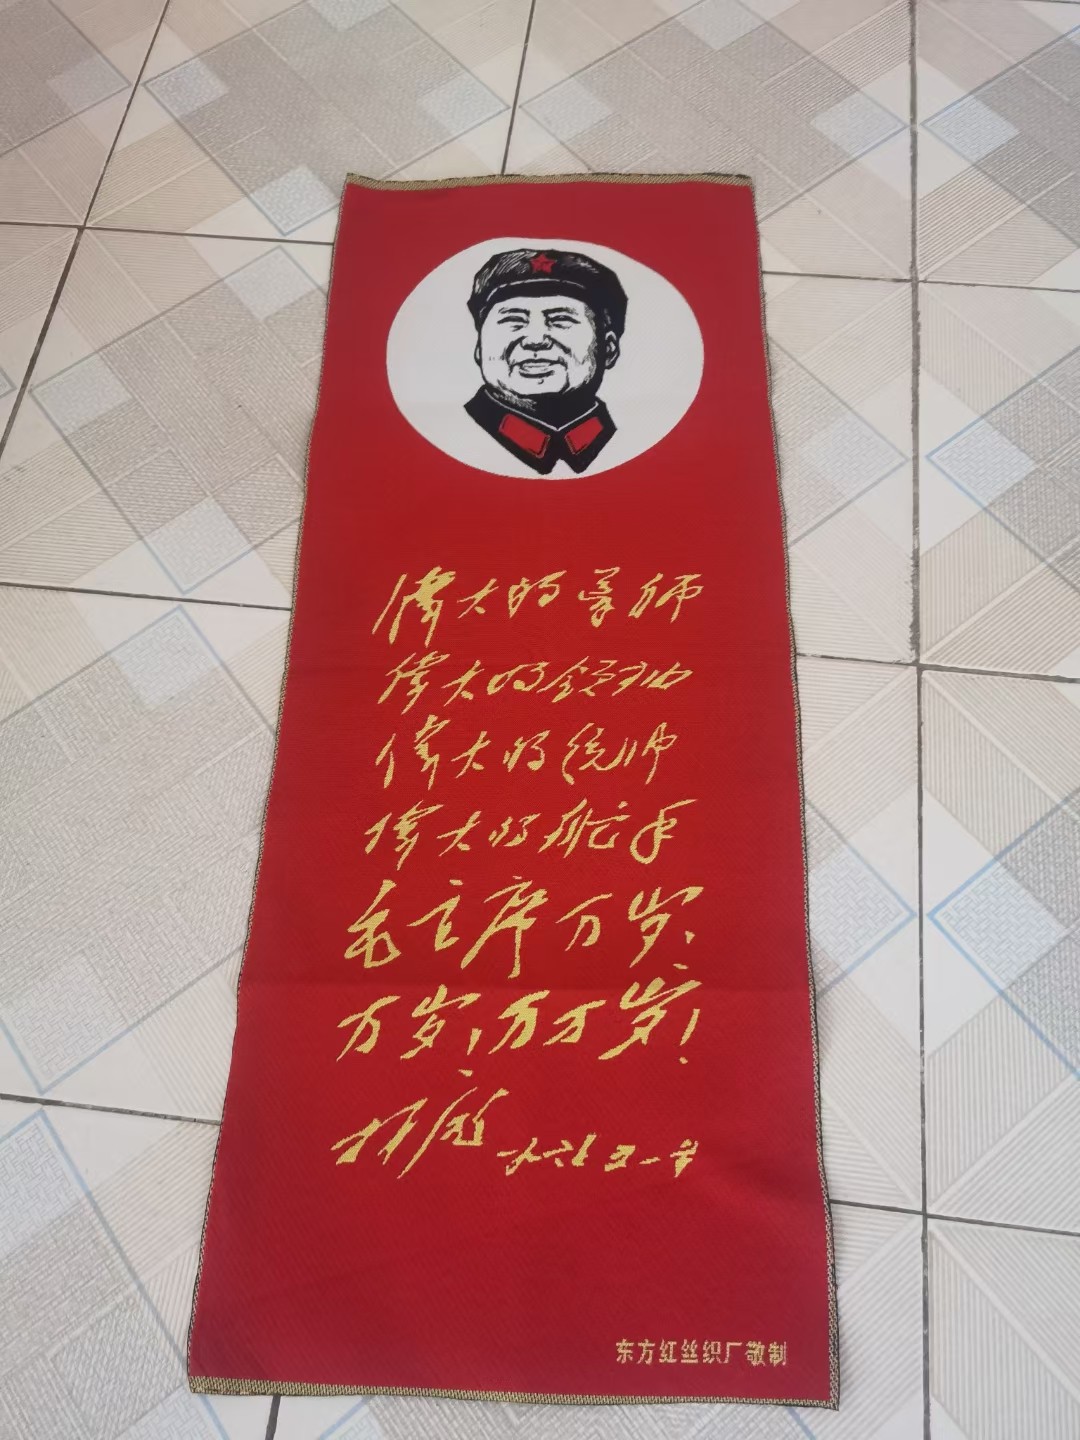 偉大的导师
偉大的领袖
偉大的统帅
偉大的舵手
毛主席万岁、
万岁！万万岁！
林彪
东方红丝织厂敬制